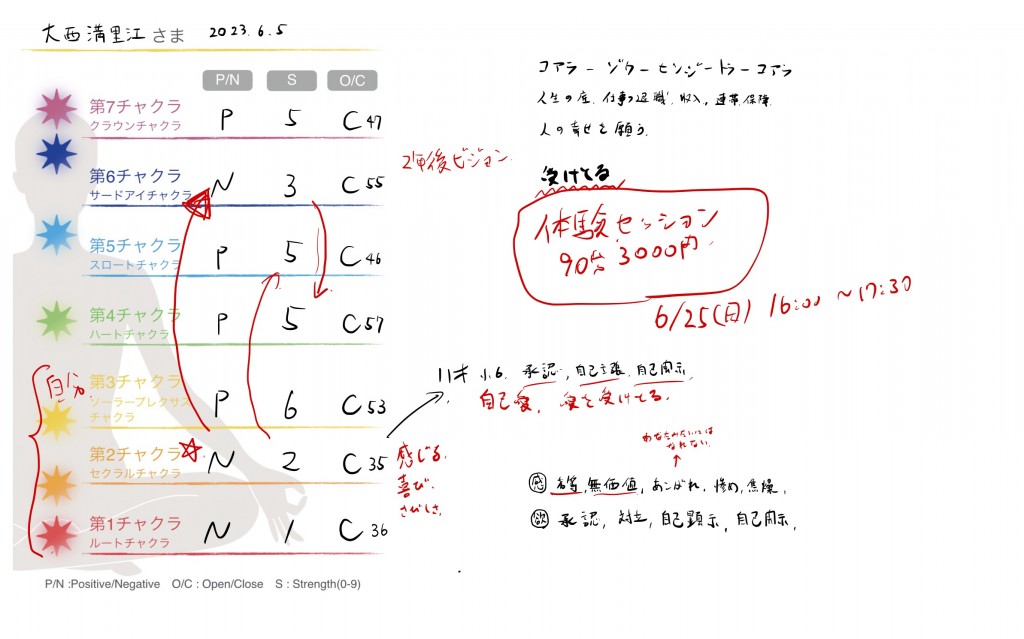 大西満里江 さま 2023.6.5
P/N S O/C
第7チャクラ
クラウンチャクラ
P 5 C47
第6チャクラ
サードアイチャクラ
N 3 C55
2年後ビジョン
第5チャクラ
スロートチャクラ
P 5 C46
第4チャクラ
ハートチャクラ
P 5 C57
自分
第3チャクラ
ソーラープレクサス
チャクラ
P 6 C53
第2チャクラ
セクラルチャクラ
N 2 C35
感じる
喜び
さびしさ
第1チャクラ
ルートチャクラ
N 1 C36
P/N :Positive/Negative O/C : Open/Close S : Strength(0-9)
コアラ ー ゾウ ー センジー トラ ー コアラ
人生の 仕事 退職、収入、連帯保障
人の幸せを願う
受けてる
体験セッション
90分 3000円
6/25(日) 16:00 ~ 17:30
11才 小6. 承認, 自己主張, 自己開示,
自己愛, 愛を受けてる.
あなたみたいには
なれない.
感 無価値, あこがれ, 惨め, 焦燥,
欲 承認, 対立, 自己顕示, 自己開示,